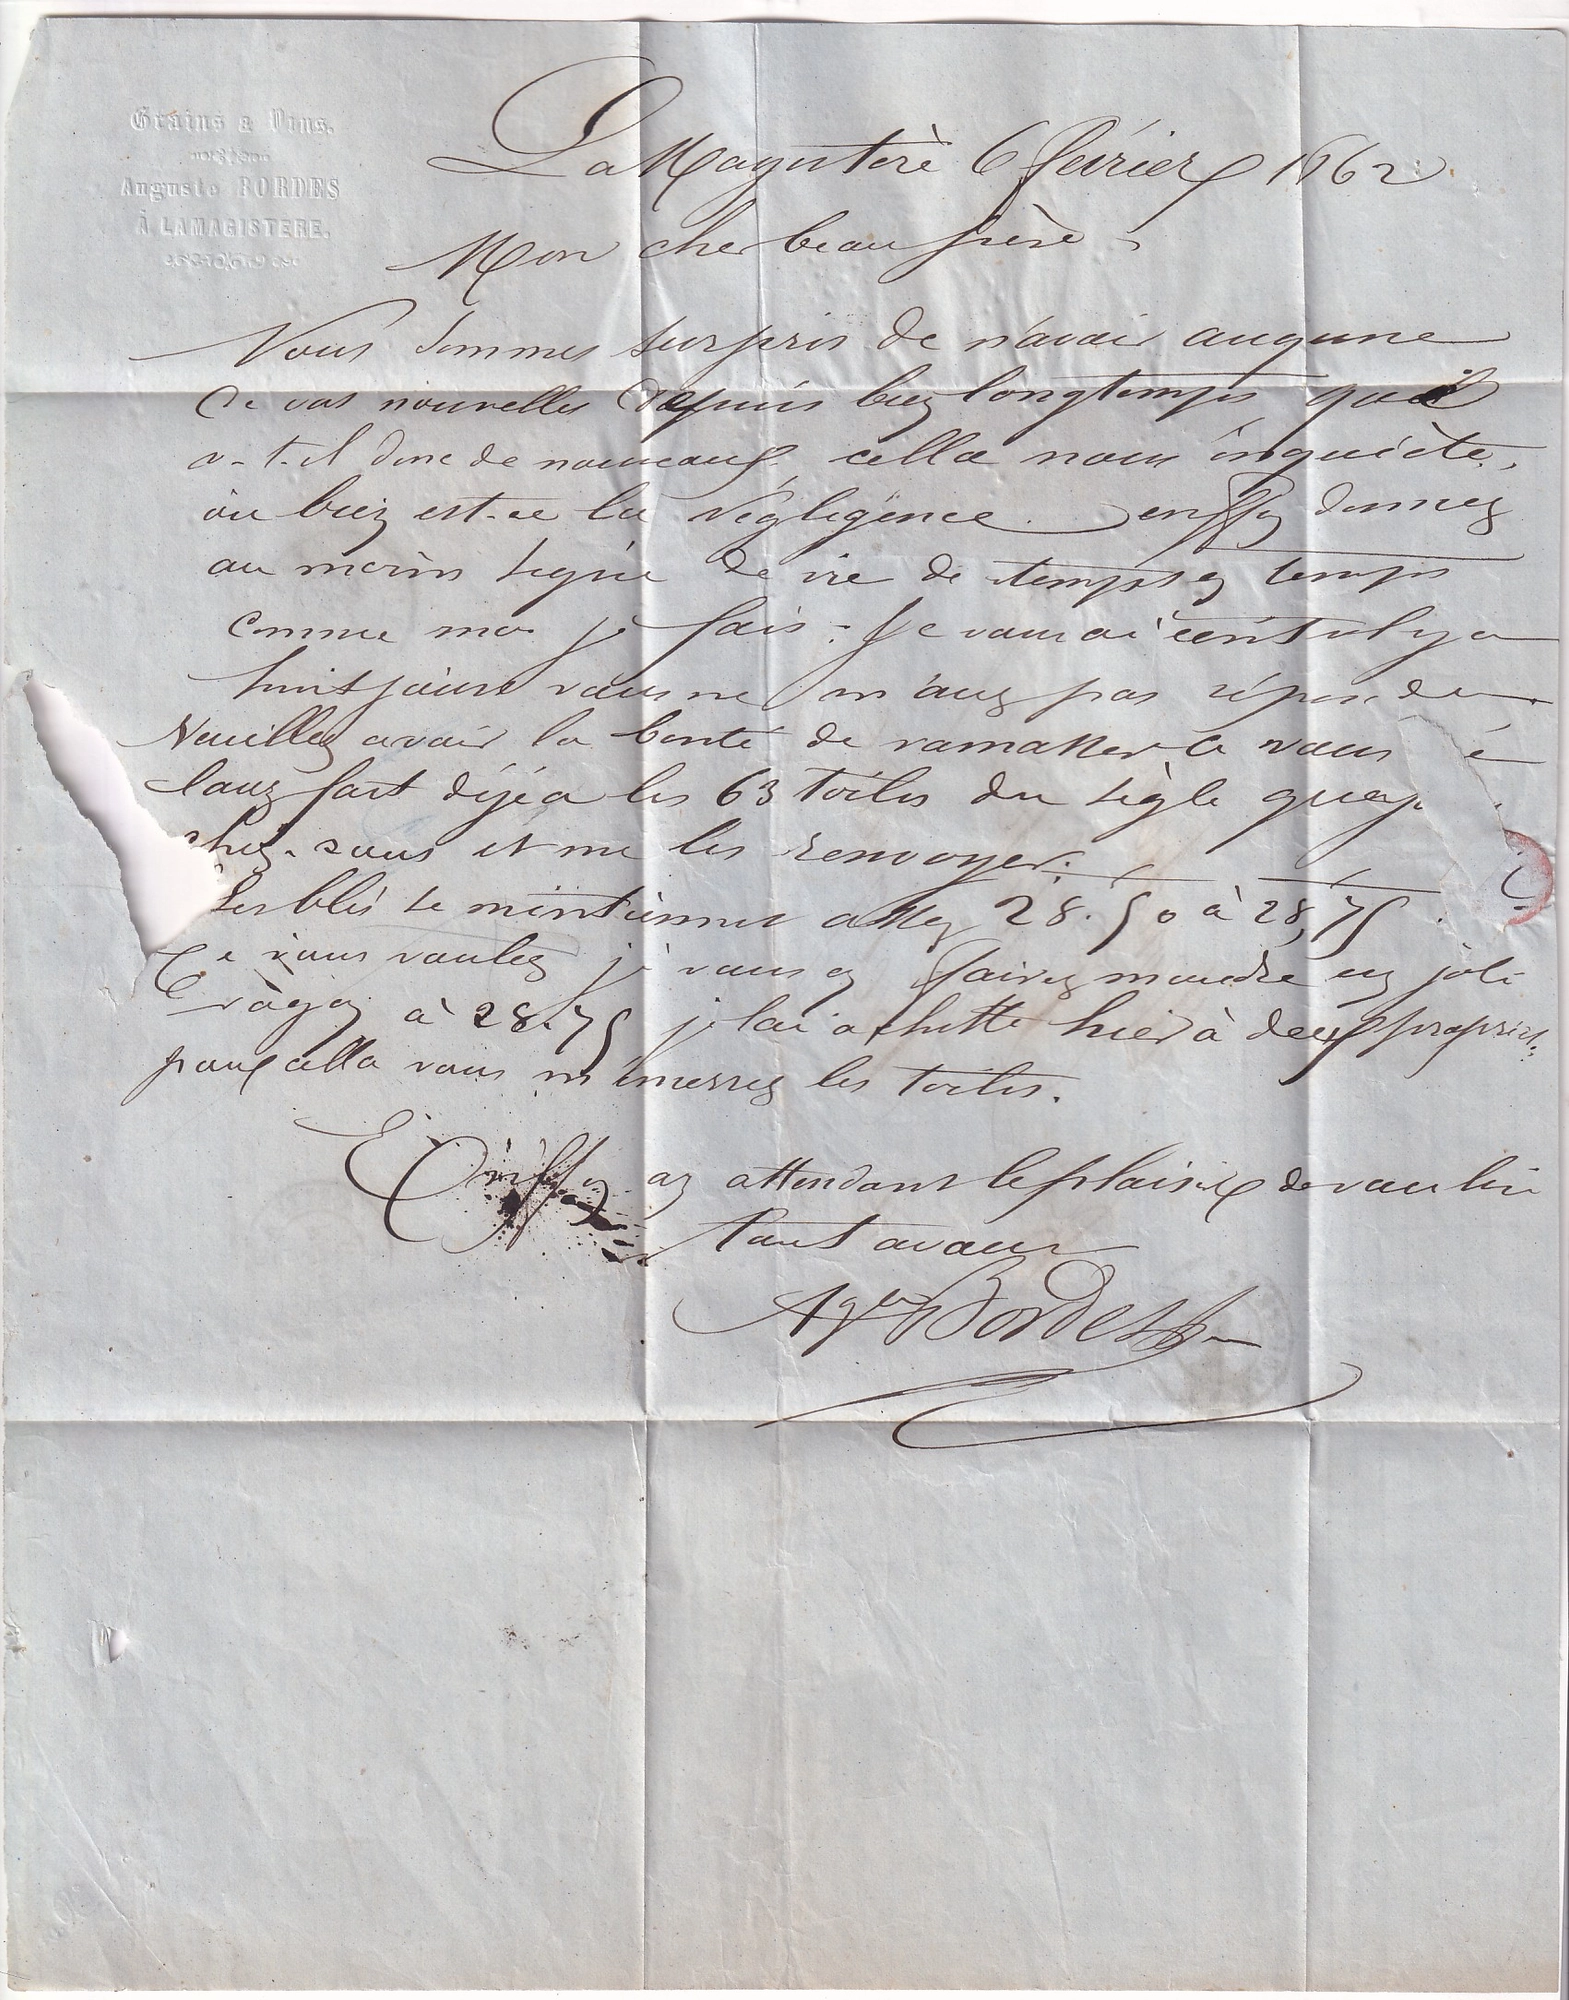 Grains & Vins.
Auguste BORDES
À LAMAGISTERE.
LaMagistère 6 février 1862
Mon cher beau frère
Nous sommes surpris de n'avoir augune
de vos nouvelles depuis bien longtemps qu'il
a-t-il donc de nouveau, cella nous inquiète,
ou bien est-ce la négligence. enffin donnez
au moins signe de vie de temps en temps
comme moi je fais. Je vous ai écrit il y a
huit jours vous ne m'avez pas répondu
Veuillez avoir la bonté de ramasser si vous
l'avez fait déjéa les 63 toiles du sègle que j
chez vous et me les renvoyer.
Les blés se mintiennet assez 28.50 à 28,75.
Ce vous voulez je vous en fairez moudre un joli
à 28.75 je l'ai achetté hier à deux propriet.
pour cella vous m'enverrez les toiles.
Enffin en attendant le plaisir de vous lire
Tout avous
Agte Bordes